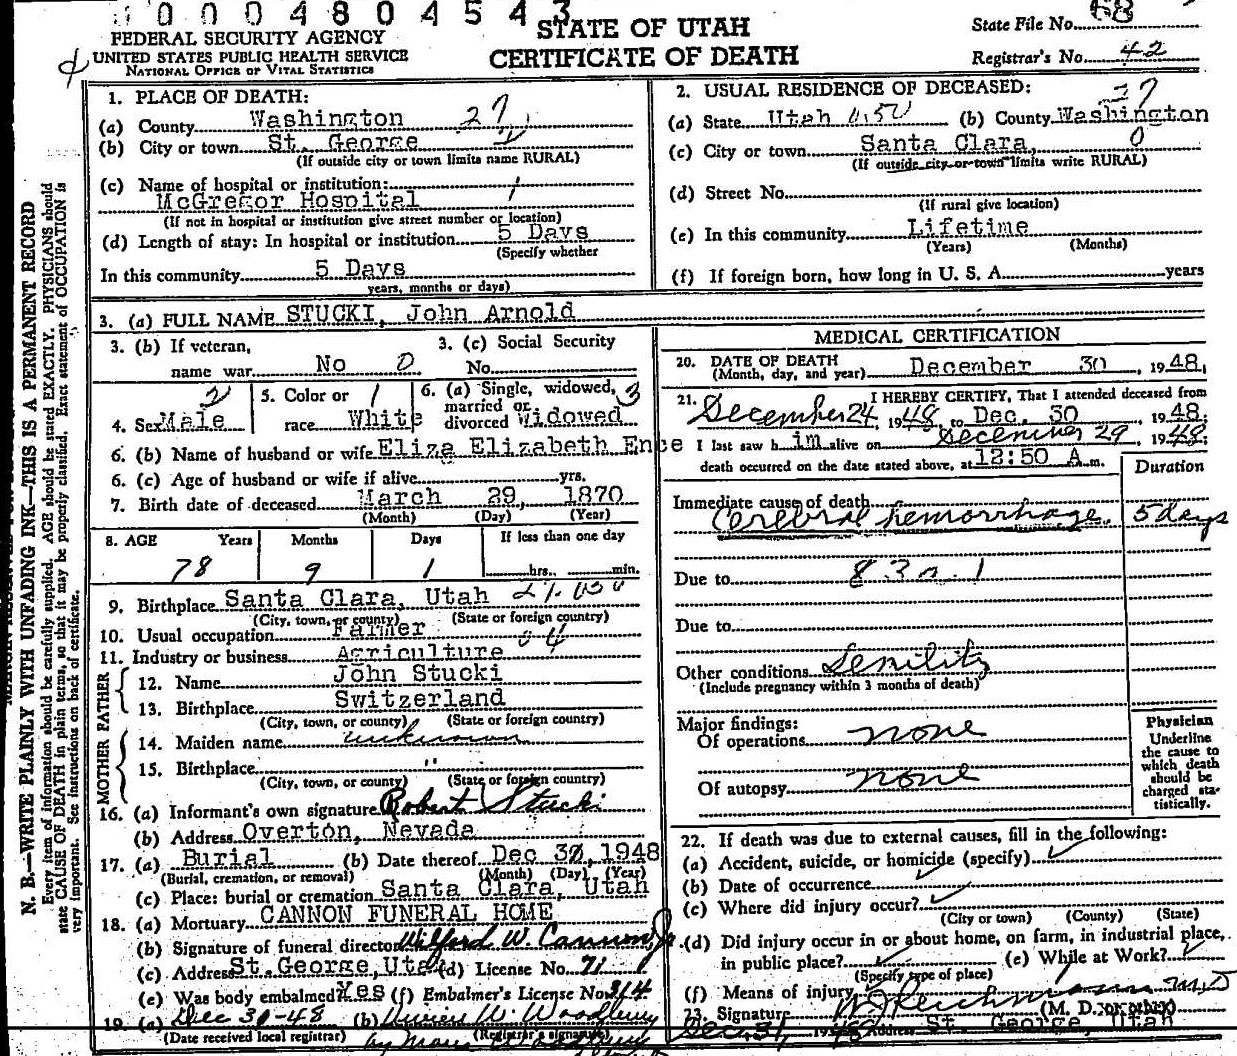 0 0 0 4 8 0 4 5 4 3
STATE OF UTAH
CERTIFICATE OF DEATH
FEDERAL SECURITY AGENCY
UNITED STATES PUBLIC HEALTH SERVICE
NATIONAL OFFICE OF VITAL STATISTICS
State File No. 68
Registrar's No. 42
N. B.—WRITE PLAINLY WITH UNFADING INK—THIS IS A PERMANENT RECORD
Every item of information should be carefully supplied. AGE should be stated EXACTLY. PHYSICIANS should
state CAUSE OF DEATH in plain terms, so that it may be properly classified. Exact statement of OCCUPATION is
very important. See instructions on back of certificate.
1. PLACE OF DEATH:
(a) County Washington 27
(b) City or town St. George
(If outside city or town limits name RURAL)
(c) Name of hospital or institution: 1
McGregor Hospital
(If not in hospital or institution give street number or location)
(d) Length of stay: In hospital or institution 5 Days
(Specify whether
In this community 5 Days
years, months or days)
2. USUAL RESIDENCE OF DECEASED: 27
(a) State Utah (b) County Washington
(c) City or town Santa Clara, 0
(If outside city or town limits write RURAL)
(d) Street No.
(If rural give location)
(e) In this community Lifetime
(Years) (Months)
(f) If foreign born, how long in U. S. A. years
3. (a) FULL NAME STUCKI, John Arnold
3. (b) If veteran, 3. (c) Social Security
name war No 0 No.
2 5. Color or 1 6. (a) Single, widowed, 3
married or
4. Sex Male race White divorced Widowed
6. (b) Name of husband or wife Eliza Elizabeth Ence
6. (c) Age of husband or wife if alive yrs.
7. Birth date of deceased March 29, 1870
(Month) (Day) (Year)
8. AGE Years Months Days If less than one day
78 9 1 hrs. min.
9. Birthplace Santa Clara, Utah
(City, town, or county) (State or foreign country)
10. Usual occupation Farmer 04
11. Industry or business Agriculture
FATHER
12. Name John Stucki
13. Birthplace Switzerland
(City, town, or county) (State or foreign country)
MOTHER
14. Maiden name unknown
15. Birthplace "
(City, town, or county) (State or foreign country)
16. (a) Informant's own signature Robert Stucki
(b) Address Overton, Nevada
17. (a) Burial (b) Date thereof Dec 1948
(Burial, cremation, or removal) (Month) (Day) (Year)
(c) Place: burial or cremation Santa Clara, Utah
18. (a) Mortuary CANNON FUNERAL HOME
(b) Signature of funeral director Wilford W. Cannon, Jr.
(c) Address St. George, Utah (d) License No. 71
(e) Was body embalmed? Yes (f) Embalmer's License No. 314
19. (a) Dec 31-48 (b) W. Woodbury
(Date received local registrar) (Registrar's signature)
MEDICAL CERTIFICATION
20. DATE OF DEATH
(Month, day, and year) December 30, 1948.
21. I HEREBY CERTIFY, That I attended deceased from
December 24, 1948, to Dec. 30 1948;
I last saw him alive on December 29, 1948;
death occurred on the date stated above, at 12:50 A.m.
Duration
Immediate cause of death
Cerebral hemorrhage 5 days
Due to
Due to
Other conditions Senility
(Include pregnancy within 3 months of death)
Major findings:
Of operations none
Of autopsy none
Physician
Underline
the cause to
which death
should be
charged sta-
tistically.
22. If death was due to external causes, fill in the following:
(a) Accident, suicide, or homicide (specify)
(b) Date of occurrence
(c) Where did injury occur?
(City or town) (County) (State)
(d) Did injury occur in or about home, on farm, in industrial place,
in public place? (e) While at Work?
(Specify type of place)
(f) Means of injury
23. Signature Reichmann M.D
(M. D. or other)
Dec. 31, 1948 Address St. George, Utah